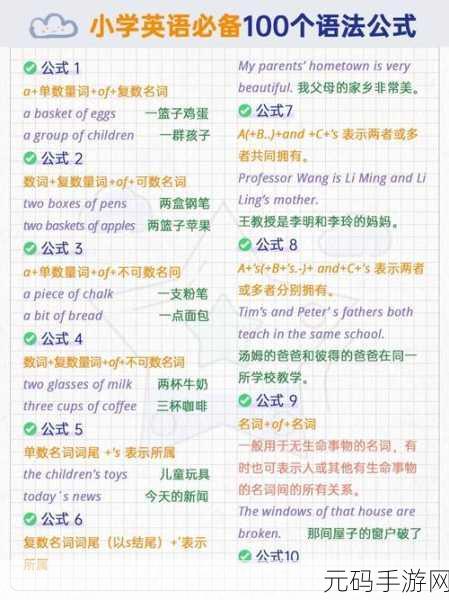 小学英语必备100个语法公式
公式 1
a+单数量词+of+复数名词
a basket of eggs 一篮子鸡蛋
a group of children 一群孩子
公式 2
数词+复数量词+of+可数名词
two boxes of pens 两盒钢笔
two baskets of apples 两篮子苹果
公式 3
a+单数量词+of+不可数名问
a piece of chalk 一支粉笔
a bit of bread 一点面包
公式 4
数词+复数量词+of+不可数名词
two glasses of milk 两杯牛奶
three cups of coffee 三杯咖啡
公式 5
单数名词词尾 +'s 表示所属
the children's toys 儿童玩具
today's news 今天的新闻
公式 6
复数名词词尾（以s结尾）+'表示
所属
My parents' hometown is very
beautiful. 我父母的家乡非常美。
公式7
A(+B..)+and +C+'s 表示两者或多
者共同拥有。
Professor Wang is Li Ming and Li
Ling's mother.
王教授是李明和李玲的妈妈。
公式 8
A+'s(+B+'s.-)+ and+C+'s 表示两者
或多者分别拥有。
Tim's and Peter' s fathers both
teach in the same school.
汤姆的爸爸和彼得的爸爸在同一
所学校教学。
公式 9
名词+of+名词
一般用于无生命事物的名词，有
时也可表示人或其他有生命事物
的名词间的所有关系。
The windows of that house are
broken. 那间屋子的窗户破了
公式10
元码手游网